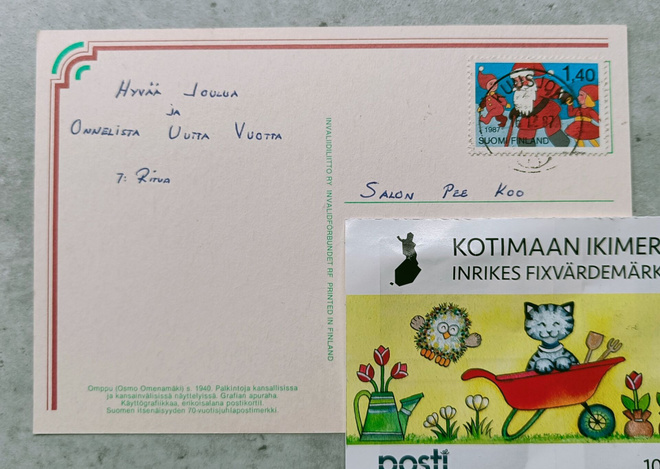 HYVÄÄ JOULUA
ja
ONNELLISTA UUTTA VUOTTA
T: RITVA
1,40
KUUSJOKI
16.12.87
1987
SUOMI FINLAND
SALON PEE KOO
INVALIDILIITTO RY INVALIDFÖRBUNDET RF PRINTED IN FINLAND
Omppu (Osmo Omenamäki) s. 1940. Palkintoja kansallisissa
ja kansainvälisissä näyttelyissä. Grafian apuraha
Käyttögrafiikkaa, erikoisalana postikortit.
Suomen itsenäisyyden 70-vuotisjuhlapostimerkki.
KOTIMAAN IKIMER
INRIKES FIXVÄRDEMÄRK
posti
10